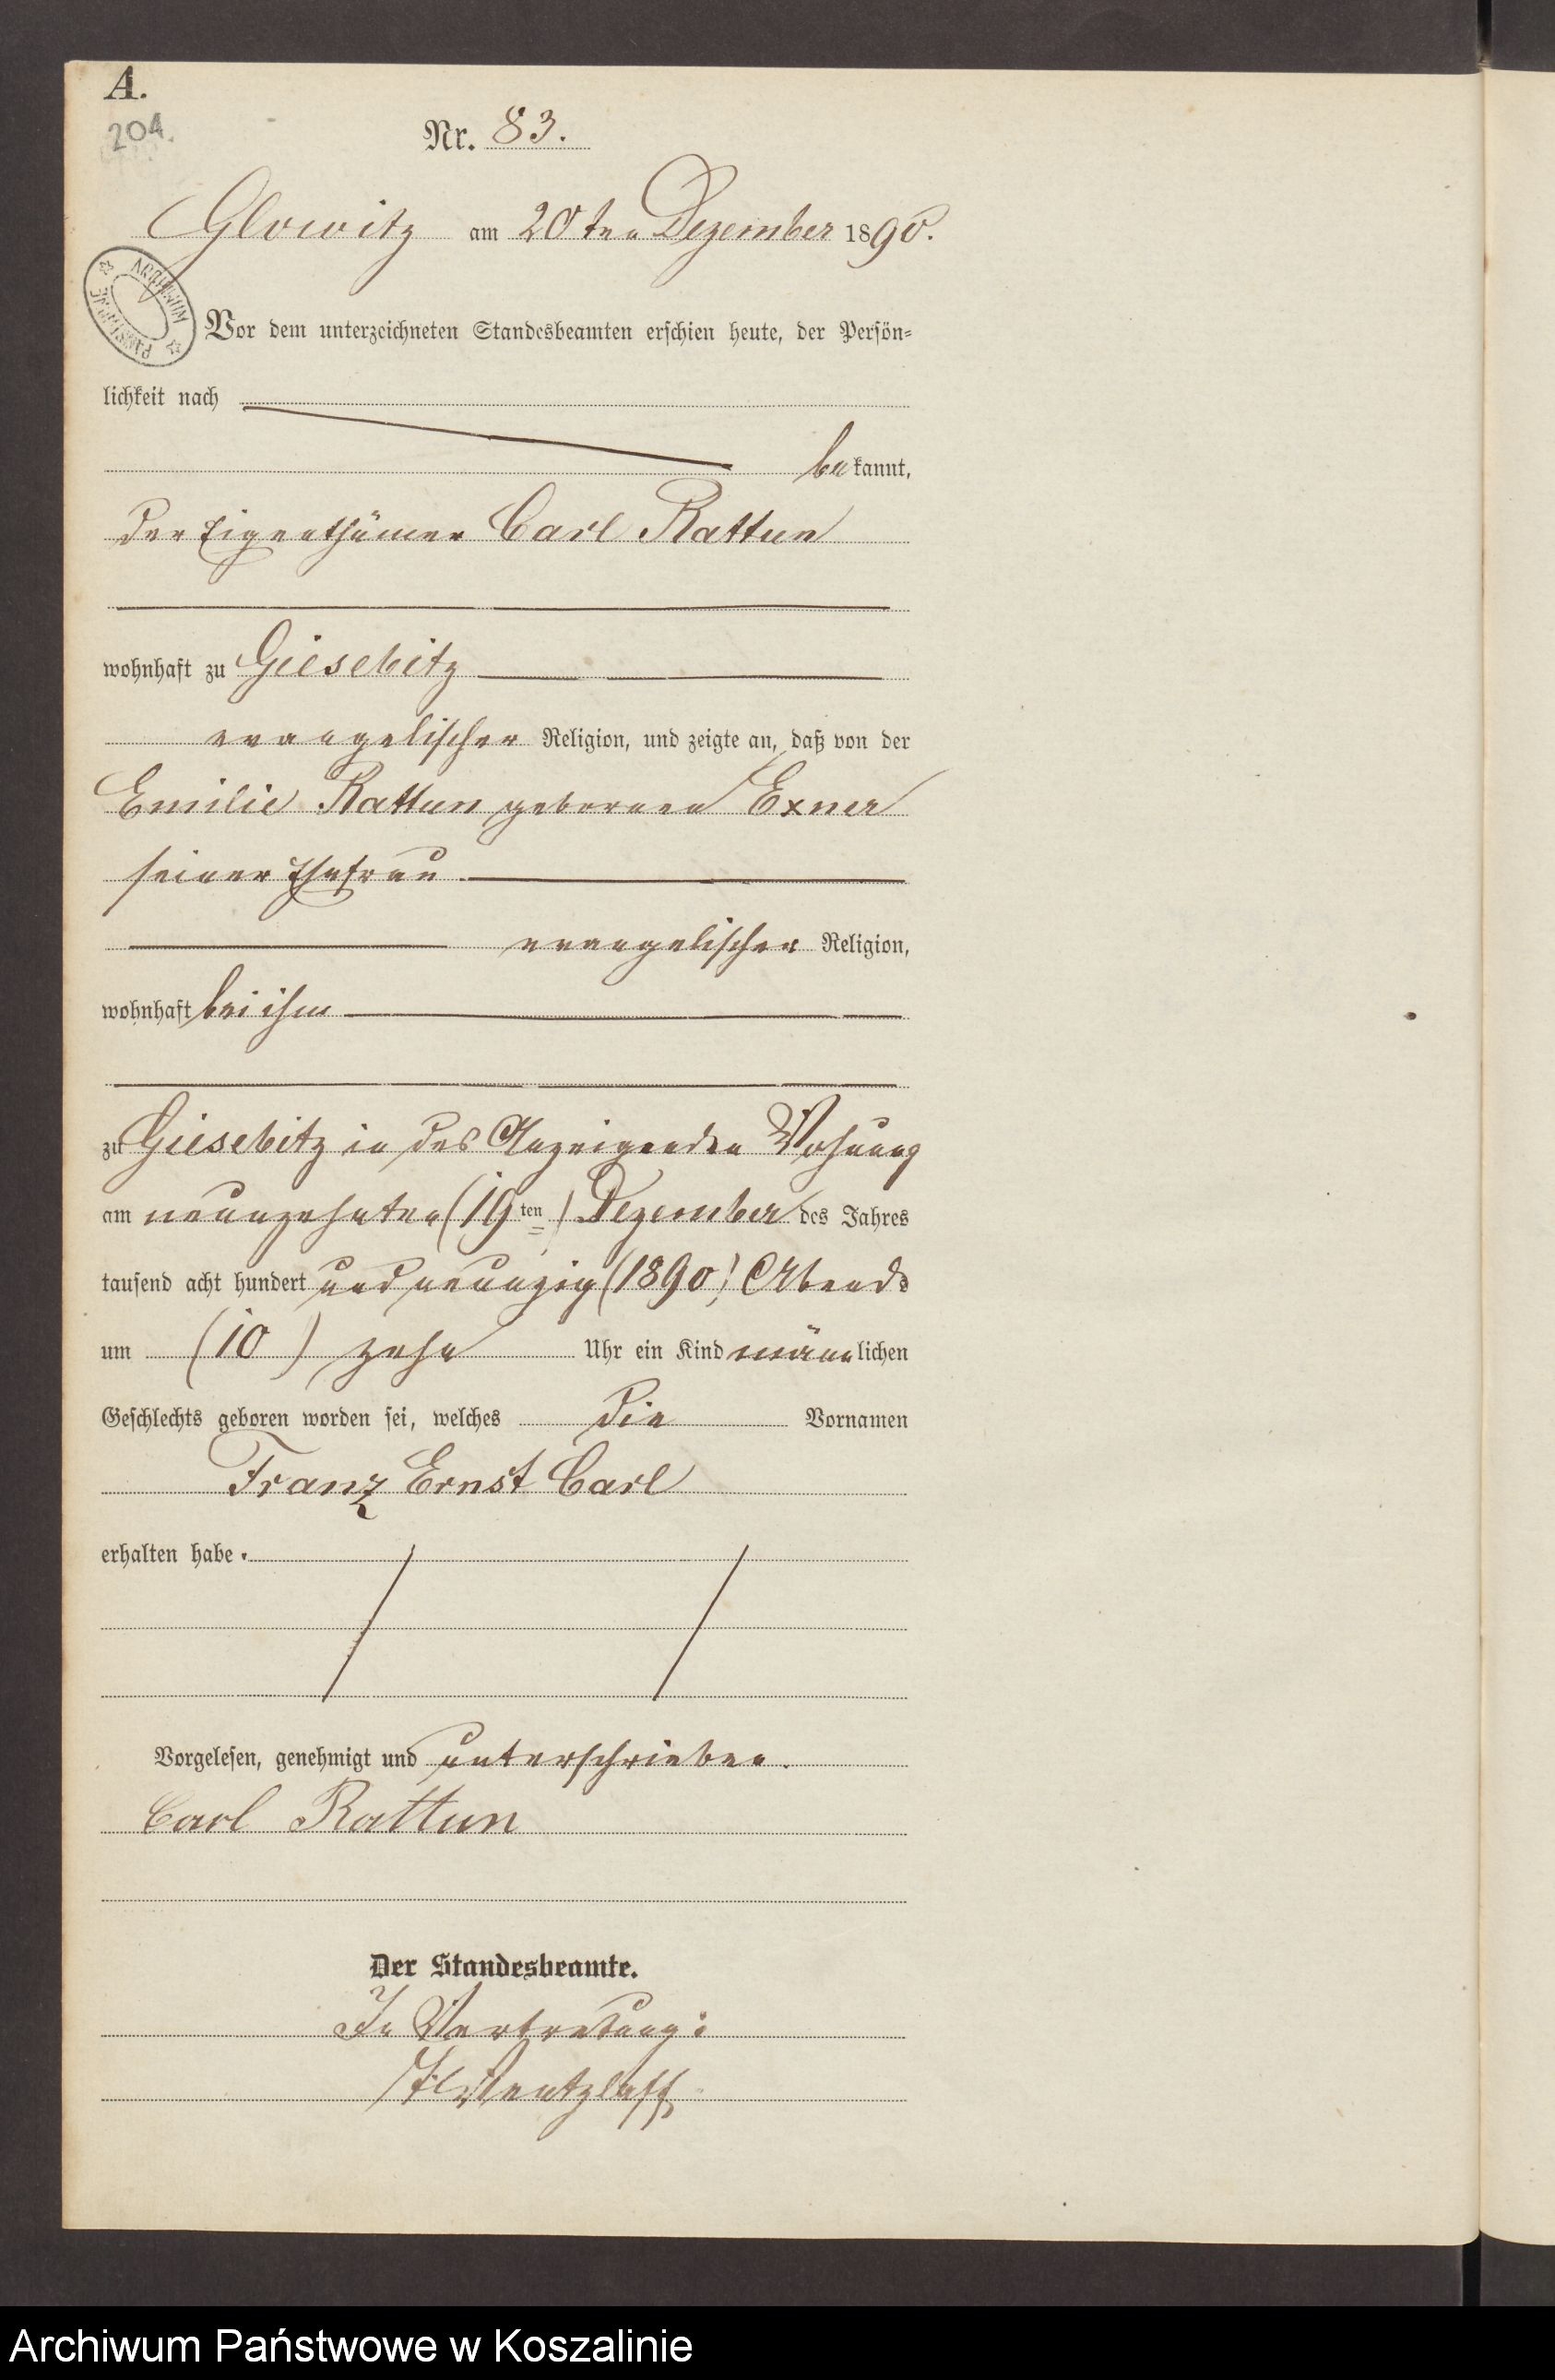 A.
204.
Nr. 83.
Glowitz am 20ten Dezember 1890.
ARCHIWUM PAŃSTWOWE
Vor dem unterzeichneten Standesbeamten erschien heute, der Persön-
lichkeit nach
bekannt,
der Eigenthümer Carl Rattun
wohnhaft zu Giesebitz
evangelischer Religion, und zeigte an, daß von der
Emilie Rattun gebornen Exner
seiner Ehefrau
evangelischer Religion,
wohnhaft bei ihm
zu Giesebitz in des Anzeigenden Wohnung
am neunzehnten (19ten) Dezember des Jahres
tausend acht hundert und neunzig (1890) Abends
um (10) zehn Uhr ein Kind männlichen
Geschlechts geboren worden sei, welches die Vornamen
Franz Ernst Carl
erhalten habe.
Vorgelesen, genehmigt und unterschrieben.
Carl Rattun
Der Standesbeamte.
In Vertretung:
Archiwum Państwowe w Koszalinie